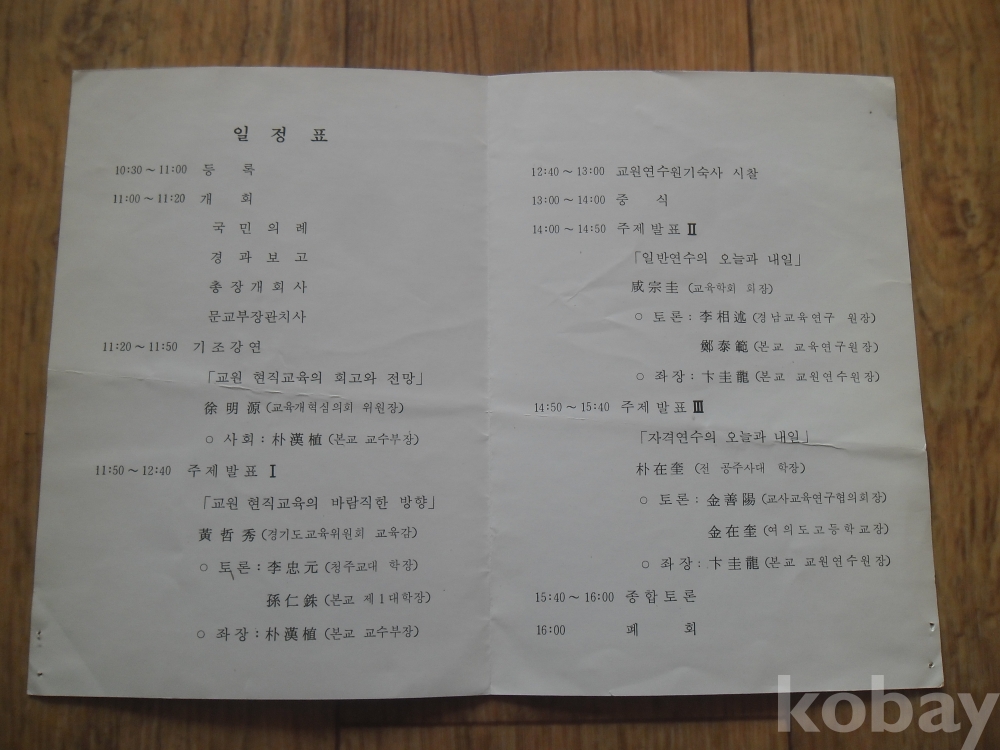 일 정 표
10:30 ~ 11:00 등 록
11:00 ~ 11:20 개 회
국 민 의 례
경 과 보 고
총 장 개 회 사
문교부장관치사
11:20 ~ 11:50 기 조 강 연
「교원 현직교육의 회고와 전망」
徐 明 源 (교육개혁심의회 위원장)
○ 사회 : 朴漢植 (본교 교수부장)
11:50 ~ 12:40 주 제 발 표 Ⅰ
「교원 현직교육의 바람직한 방향」
黃 哲 秀 (경기도교육위원회 교육감)
○ 토론 : 李忠元 (청주교대 학장)
孫仁銖 (본교 제1대학장)
○ 좌장 : 朴漢植 (본교 교수부장)
12:40 ~ 13:00 교원연수원기숙사 시찰
13:00 ~ 14:00 중 식
14:00 ~ 14:50 주제 발표 Ⅱ
「일반연수의 오늘과 내일」
咸宗圭 (교육학회 회장)
○ 토론 : 李相述 (경남교육연구 원장)
鄭泰範 (본교 교육연구원장)
○ 좌장 : 卞圭龍 (본교 교원연수원장)
14:50 ~ 15:40 주제 발표 Ⅲ
「자격연수의 오늘과 내일」
朴在奎 (전 공주사대 학장)
○ 토론 : 金善陽 (교사교육연구협의회장)
金在奎 (여의도고등학교장)
○ 좌장 : 卞圭龍 (본교 교원연수원장)
15:40 ~ 16:00 종합토론
16:00 폐 회
kobay